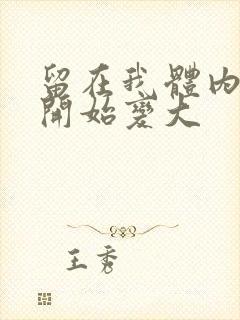 留在我體內
開始變大
王秀